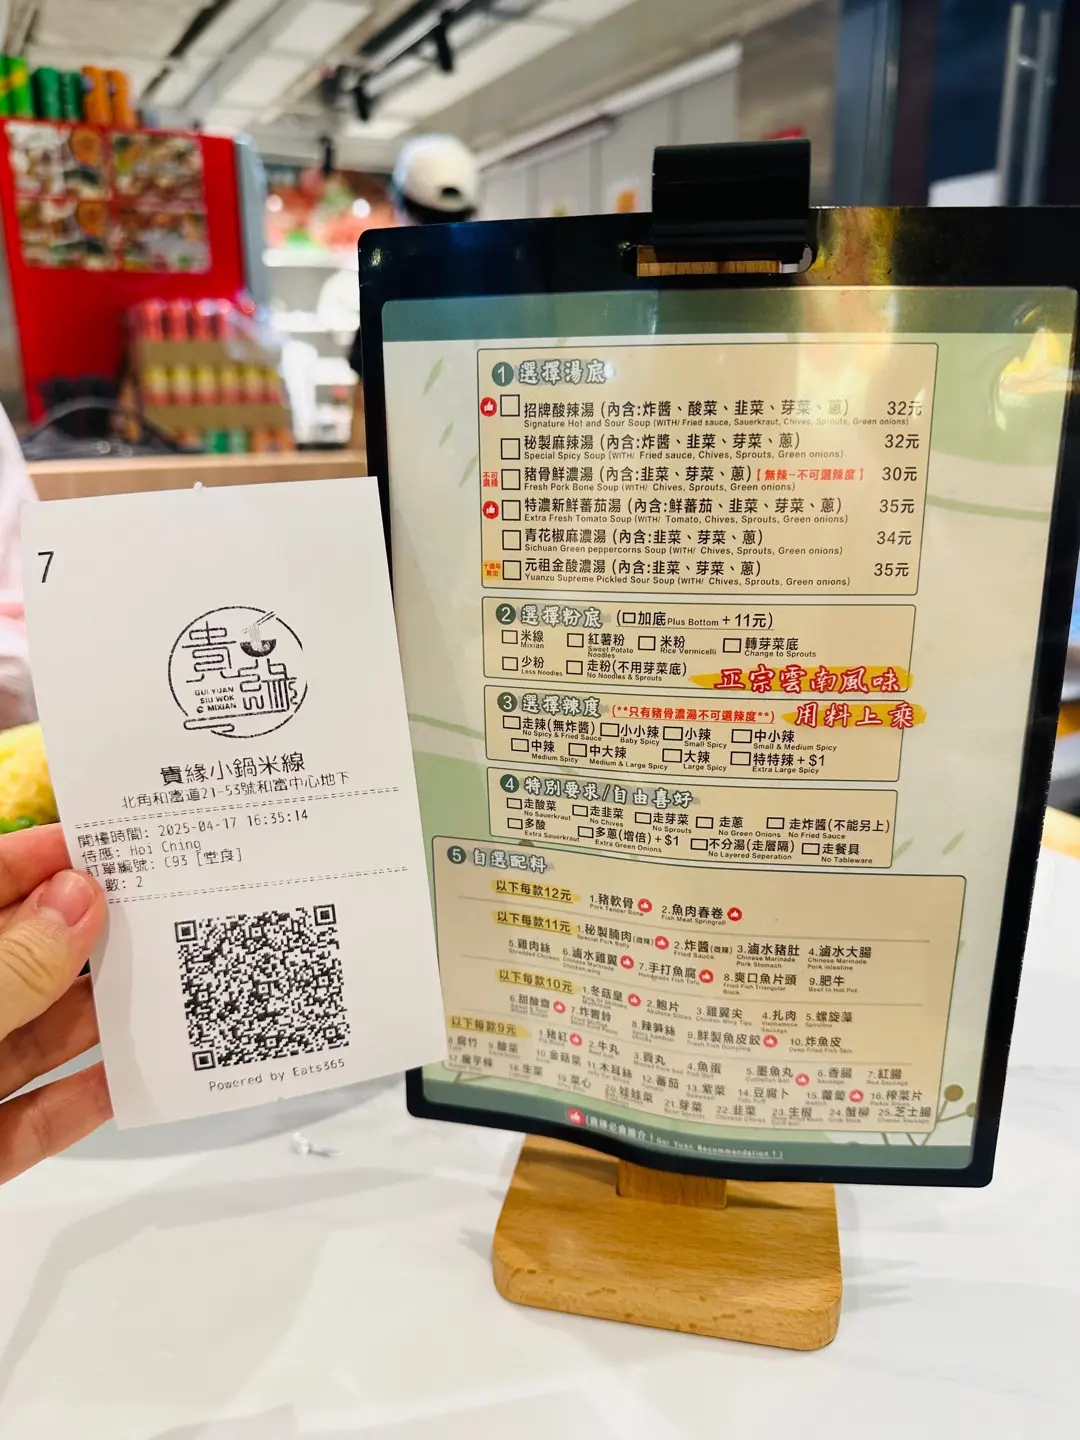 7
貴緣
GUI YUAN
SIU WOK
MIXIAN
貴緣小鍋米線
北角和富道21-53號和富中心地下
開檯時間: 2025-04-17 16:35:14
侍應: Hoi Ching
訂單編號: C93 [堂食]
數: 2
Powered by Eats365
1 選擇湯底
招牌酸辣湯 (內含:炸醬、酸菜、韭菜、芽菜、蔥) 32元
Signature Hot and Sour Soup (WITH/ Fried sauce, Sauerkraut, Chives, Sprouts, Green onions)
秘製麻辣湯 (內含:炸醬、韭菜、芽菜、蔥) 32元
Special Spicy Soup (WITH/ Fried sauce, Chives, Sprouts, Green onions)
不可選辣 豬骨鮮濃湯 (內含:韭菜、芽菜、蔥)【無辣-不可選辣度】 30元
Fresh Pork Bone Soup (WITH/ Chives, Sprouts, Green onions)
特濃新鮮蕃茄湯 (內含:鮮蕃茄、韭菜、芽菜、蔥) 35元
Extra Fresh Tomato Soup (WITH/ Tomato, Chives, Sprouts, Green onions)
青花椒麻濃湯 (內含:韭菜、芽菜、蔥) 34元
Sichuan Green peppercorns Soup (WITH/ Chives, Sprouts, Green onions)
元祖金酸濃湯 (內含:韭菜、芽菜、蔥) 35元
Yuanzu Supreme Pickled Sour Soup (WITH/ Chives, Sprouts, Green onions)
2 選擇粉底 (加底Plus Bottom + 11元)
米線 紅薯粉 米粉 轉芽菜底
Mixian Sweet Potato Noodles Rice Vermicelli Change to Sprouts
少粉 走粉(不用芽菜底)
Less Noodles No Noodles & Sprouts
正宗雲南風味
用料上乘
3 選擇辣度 (**只有豬骨濃湯不可選辣度**)
走辣(無炸醬) 小小辣 小辣 中小辣
No Spicy & Fried Sauce Baby Spicy Small Spicy Small & Medium Spicy
中辣 中大辣 大辣 特特辣 + $1
Medium Spicy Medium & Large Spicy Large Spicy Extra Large Spicy
4 特別要求/自由喜好
走酸菜 走韭菜 走芽菜 走蔥 走炸醬(不能另上)
No Sauerkraut No Chives No Sprouts No Green Onions No Fried Sauce
多酸 多蔥(增倍) + $1 不分湯(走層隔) 走餐具
Extra Sauerkraut Extra Green Onions No Layered Seperation No Tableware
5 自選配料
以下每款12元 1.豬軟骨 2.魚肉春卷
Pork Tender Bone Fish Meat Springroll
以下每款11元 1.秘製腩肉(微辣) 2.炸醬(微辣) 3.滷水豬肚 4.滷水大腸
Special Pork Belly Fried Sauce Chinese Marinade Pork Stomach Chinese Marinade Pork Intestine
5.雞肉絲 6.滷水雞翼 7.手打魚腐 8.爽口魚片頭 9.肥牛
Shredded Chicken Chinese Marinade Chicken wing Handmade Fish Tofu Fried Fish Triangular Block Beef in Hot Pot
以下每款10元 1.冬菇皇 2.鮑片 3.雞翼尖 4.扎肉 5.螺旋藻
Abalone Slices Chicken Wing Tips Vietnamese Sausage Spirulina
6.甜酸齋 7.炸響鈴 8.辣筍絲 9.鮮製魚皮餃 10.炸魚皮
Fresh Fish Dumpling Deep Fried Fish Skin
以下每款9元 1.豬紅 2.牛丸 3.貢丸 4.魚蛋 5.墨魚丸 6.香腸 7.紅腸
8.腐竹 9.酸菜 10.金菇菜 11.木耳絲 12.蕃茄 13.紫菜 14.豆腐卜 15.蘿蔔 16.榨菜片
17.魔芋棒 18.生菜 19.菜心 20.娃娃菜 21.芽菜 22.韭菜 23.生根 24.蟹柳 25.芝士腸
Gui Yuan Recommendation !